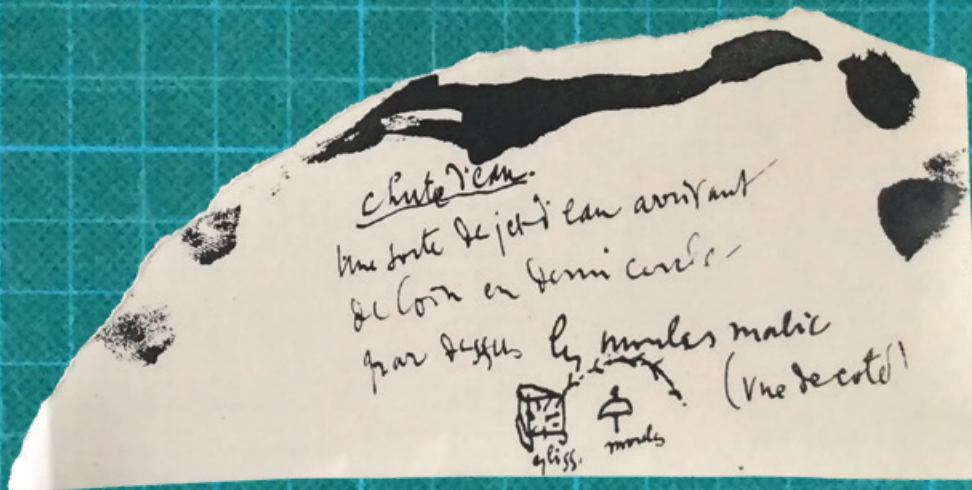 chute d'eau.
Une sorte de jet d'eau arrivant
de loin en demi cercle -
par dessus les moules malic
(vue de coté)
gliss. moules